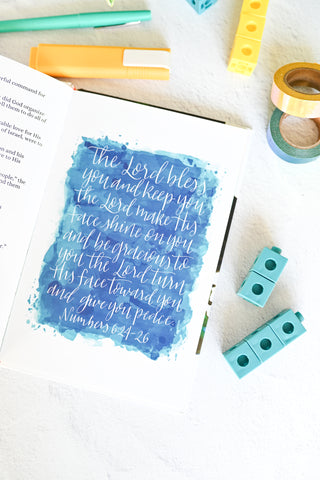 erful command for
did God organize
them to do all of
rable love for His
of Israel, were to
en and his
ere to His
people," the
nd them
The Lord bless
you and keep you
the Lord make His
face shine on you
and be gracious to
you the Lord turn
His face toward you
and give you peace.
Numbers 6:24-26